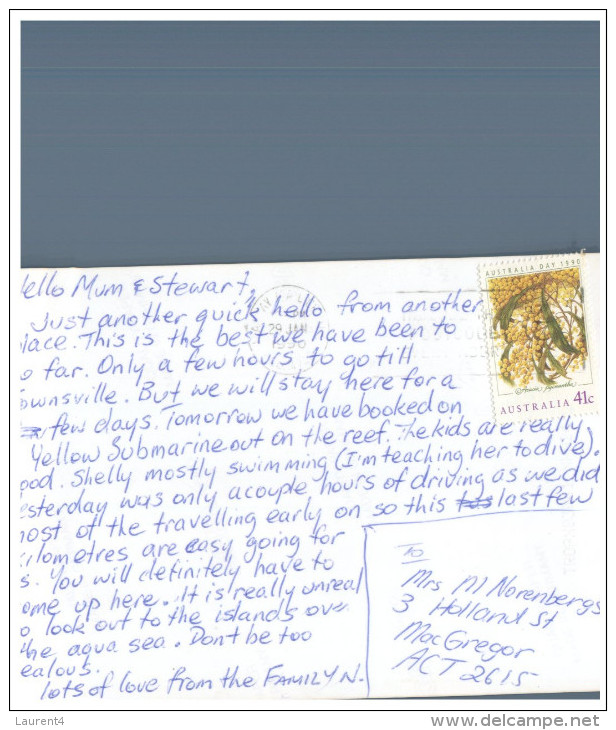 ello Mum & Stewart,
Just another quick hello from another
lace. This is the best we have been to
o far. Only a few hours to go till
ownsville. But we will stay here for a
few days. Tomorrow we have booked on
Yellow Submarine out on the reef. The kids are really
ood. Shelly mostly swimming (I'm teaching her to dive).
esterday was only a couple hours of driving as we did
ost of the travelling early on so this last few
ilometres are easy going for
s. You will definitely have to
ome up here. It is really unreal
o look out to the islands over
the aqua sea. Dont be too
ealous.
lots of love from the FAMILY N.
To
Mrs M Norenbergs
3 Holland St
MacGregor
ACT 2615
AUSTRALIA DAY 1990
AUSTRALIA 41c
29 JAN
1990
Laurent4
delcampe.net